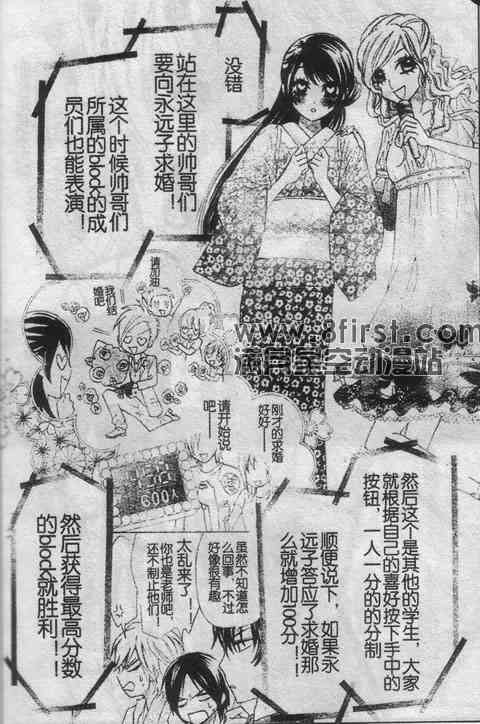 没错
站在这里的帅哥们
要向永远子求婚！
这个时候帅哥们
所属的blod的成
员们也能表演！
请加油
我们结
婚吧
刚才的求婚
好好——
请开始说
吧——
600人
www.8first.com
满月星空动漫站
然后这个是其他的学生，大家
就根据自己的喜好按下手中的
按钮，一人一分的的分制
顺便说下，如果永
远子答应了求婚那
么就增加100分！
虽然不知道怎
么回事，不过
好像很有趣
太乱来了！！
你也是老师吧
还不制止他们！
然后获得最高分数
的block就胜利！！